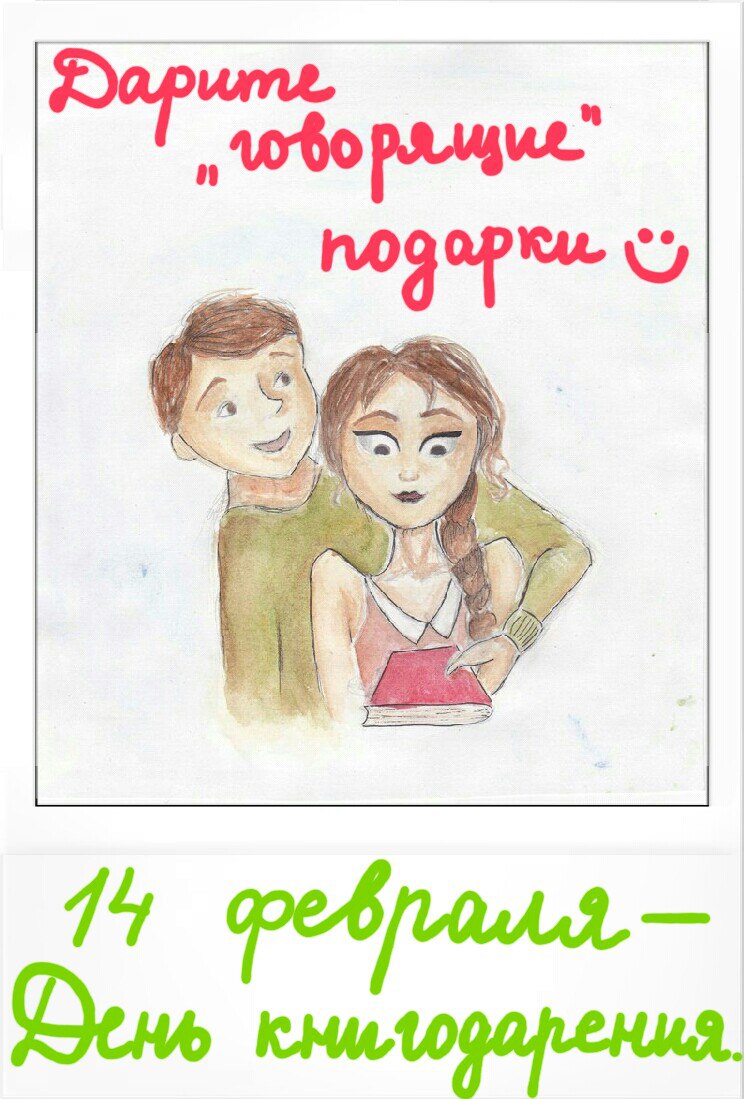 Дарите
„говорящие"
подарки
14 февраля —
День книгодарения.